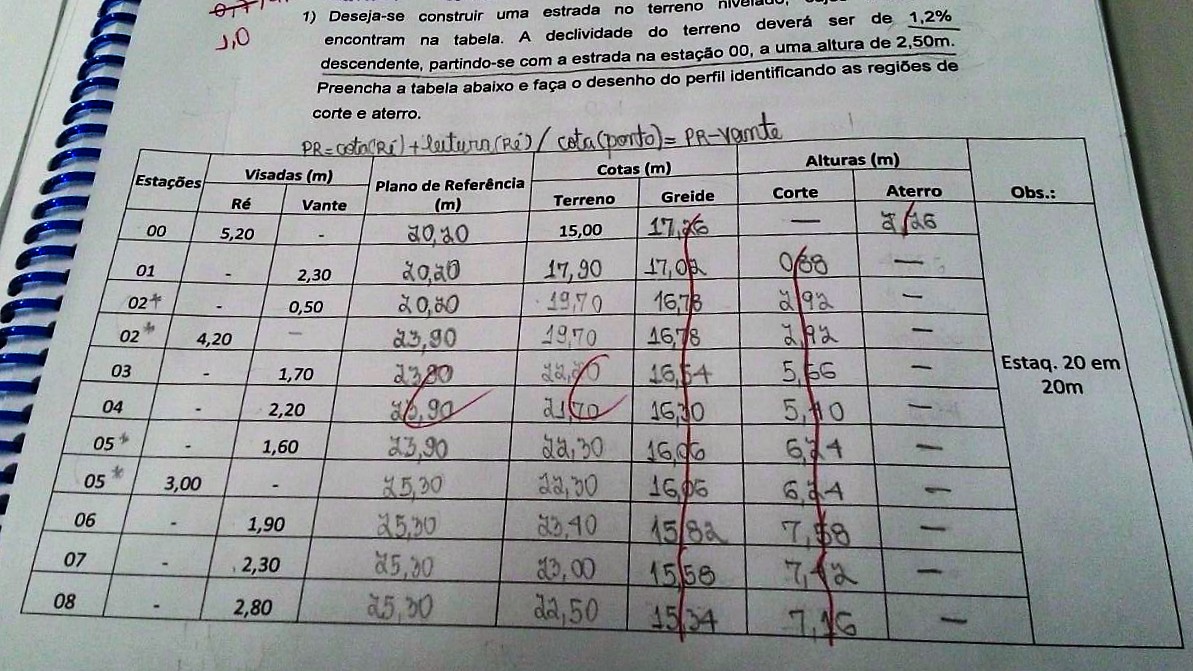 1,0
1) Deseja-se construir uma estrada no terreno nivelado,
encontram na tabela. A declividade do terreno deverá ser de 1,2%
descendente, partindo-se com a estrada na estação 00, a uma altura de 2,50m.
Preencha a tabela abaixo e faça o desenho do perfil identificando as regiões de
corte e aterro.
PR=cota(Ré)+leitura(Ré)/ cota(ponto)= PR-vante
Estações Visadas (m) Plano de Referência (m) Cotas (m) Alturas (m) Obs.:
Ré Vante Terreno Greide Corte Aterro
00 5,20 - 20,20 15,00 17,26 — 2,26
01 - 2,30 20,20 17,90 17,02 0,88 —
02* - 0,50 20,20 19,70 16,78 2,92 —
02* 4,20 — 23,90 19,70 16,78 2,92 —
03 - 1,70 23,90 22,20 16,54 5,66 —
04 - 2,20 23,90 21,70 16,30 5,40 —
05* - 1,60 23,90 22,30 16,06 6,24 —
05* 3,00 - 25,30 22,30 16,06 6,24 —
06 - 1,90 25,30 23,40 15,82 7,58 —
07 - 2,30 25,30 23,00 15,58 7,42 —
08 - 2,80 25,30 22,50 15,34 7,16 —
Estaq. 20 em
20m